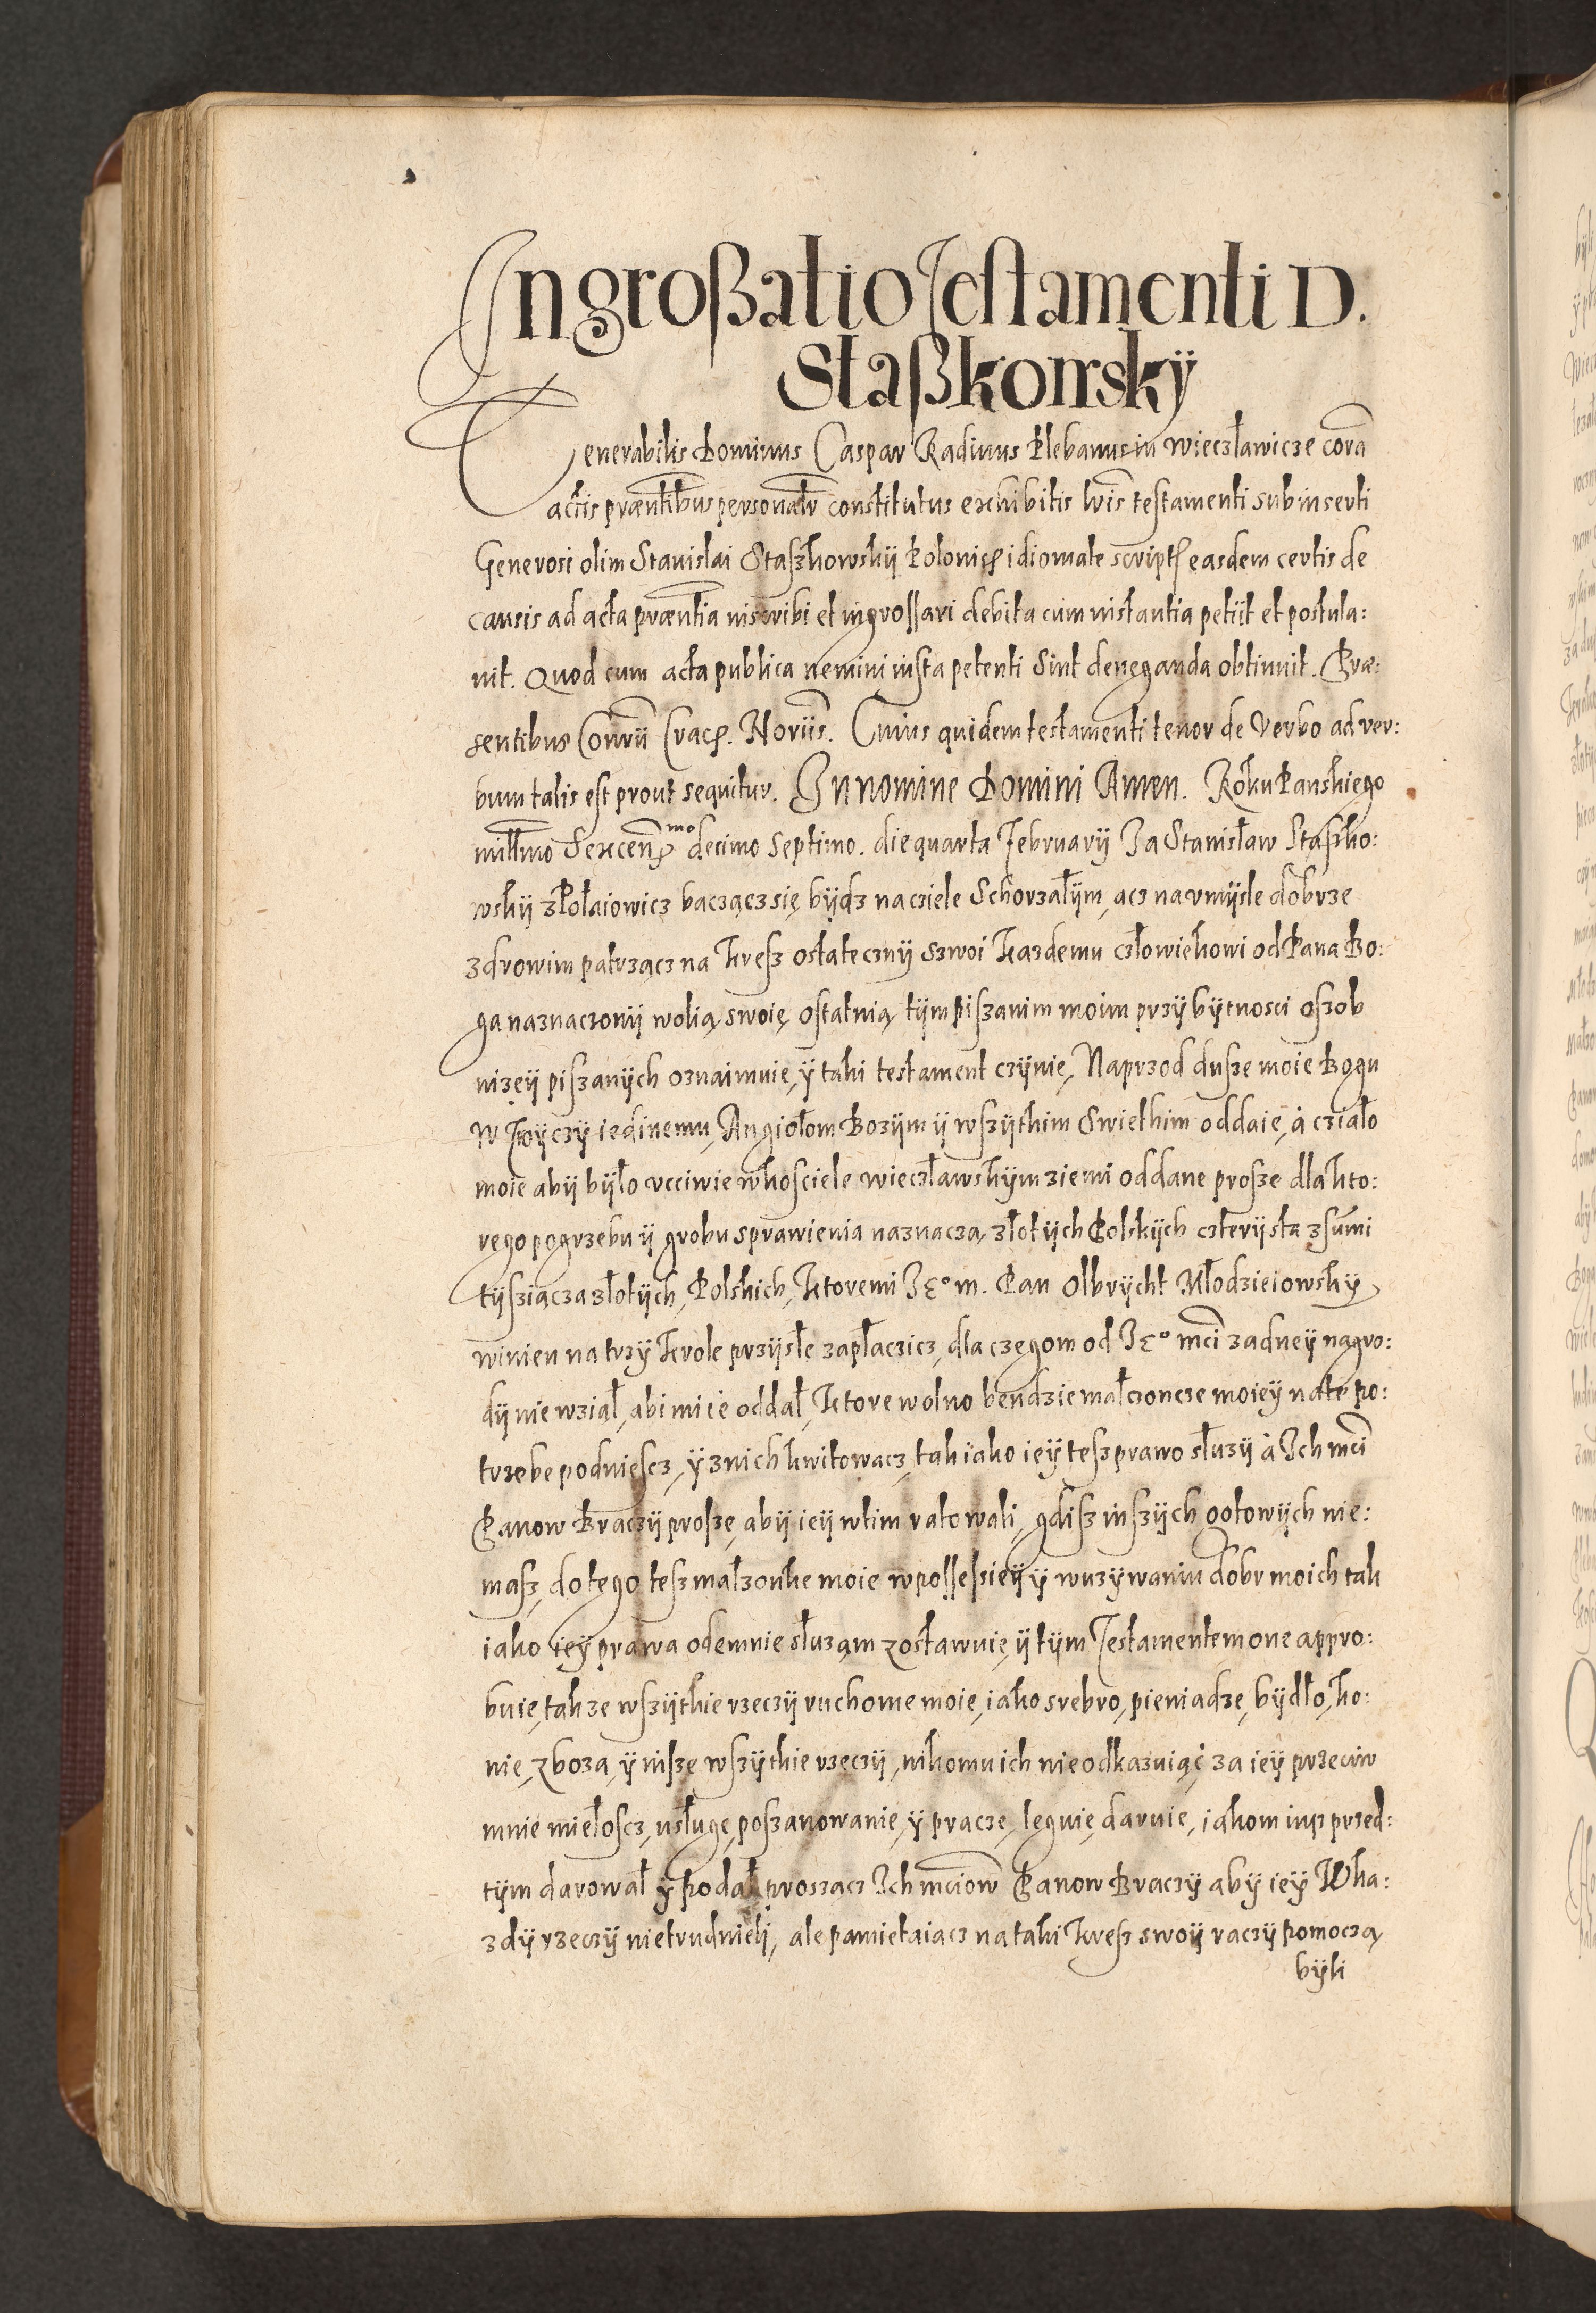 Ingroßatio Testamenti D.
Staßkowskÿ
Venerabilis Dominus Caspar Radinus Plebanus in Wieczławicze corā
actis præntibus personalr constitutus exhibitis lrīs testamenti subinserti
Generosi olim Stanislai Staszkowskÿ Polonico idiomate scriptis easdem certis de
causis ad acta præntia inscribi et ingrossari debita cum instantia petiit et postula:
uit. Quod cum acta publica nemini iusta petenti sint deneganda obtinuit. Præ:
sentibus Conrii Crac. Noriis. Cuius quidem testamenti tenor de verbo ad ver:
bum talis est prout sequitur. In nomine Domini Amen. Roku Panskiego
millmo sexcenmo decimo septimo. die quarta Februarÿ Ja Stanisław Staszko:
wskÿ z Połaiowicz bacząc się bÿdz na cziele schorzałÿm, acz na vmÿsle dobrze
zdrowim patrzącz na kresz ostatecznÿ szwoi kazdemu człowiekowi od Pana Bo:
ga naznaczonÿ wolią swoię ostatnią tÿm piszanim moim przÿ bÿtnosci oszob
nizeÿ piszanÿch oznaimuie, ÿ taki testament czÿnie, Naprzod dusze moie Bogu
w Troÿczÿ iedinemu, Angiołom Bozÿm ÿ wszÿtkim Swietkim oddaie, à cziało
moie abÿ bÿło vcciwie wkosciele wieczławskÿm ziemi oddane prosze dla kto:
rego pogrzebu ÿ grobu sprawienia naznacza, złotÿch Polskÿch czterÿsta z sumi
tÿsziącza złotÿch, Polskich, ktoremi Jeo m. Pan Olbrÿcht Młodzieiowskÿ
winien na trzÿ krole przÿsłe zapłaczicz, dla czegom od Jeo mci zadneÿ nagro:
dÿ nie wział, abi mi ie oddał, ktore wolno bendzie małzoncze moieÿ na te po:
trzebe podniescz, ÿ znich kwitowacz, tak iako ieÿ tesz prawo słuzÿ à Ich mci
Panow Braczÿ proszę, abÿ ieÿ wtim ratowali, gdisz inszÿch gotowÿch nie:
masz, do tego tesz małzonke moie w possessieÿ ÿ wuzÿwaniu dobr moich tak
iako ieÿ prawa odemnie słuzam zostawuię ÿ tÿm Testamentem one appro:
buie, takze wszÿtkie rzeczÿ ruchome moie, iako srebro, pieniadze, bÿdło, ko:
nie, zboza, ÿ insze wszÿtkie rzeczÿ, nikomu ich nieodkazuiąc za ieÿ przeciw
mnie miełoscz, usługę, poszanowanie, ÿ pracze, leguię daruie, iakom iusz przed:
tÿm darował ÿ podał proszacz Ich mciow Panow Braczÿ abÿ ieÿ w ka:
zdÿ rzeczÿ nietrudnieli, ale pamietaiacz na taki kresz swoÿ raczÿ pomoczą
bÿli